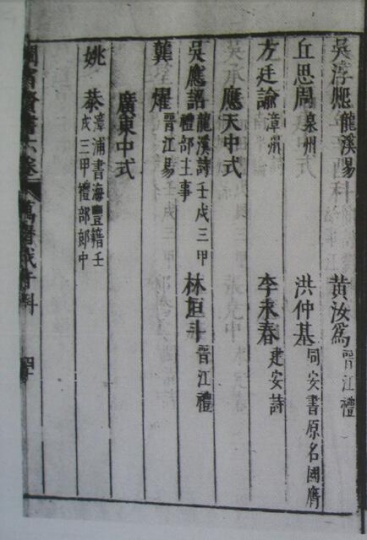 吳淳熙 龍溪易 黃汝為 晉江禮
丘思周 泉州 洪仲基 同安書原名國膺
方廷諭 漳州 李未春 建安詩
應天中式
吳應詔 龍溪詩壬戌三甲禮部主事 林恒斗 晉江禮
龔燿 晉江易
廣東中式
姚恭 漳浦書海豐籍壬戌三甲禮部郎中
閩省賢書六卷 萬曆戊午科